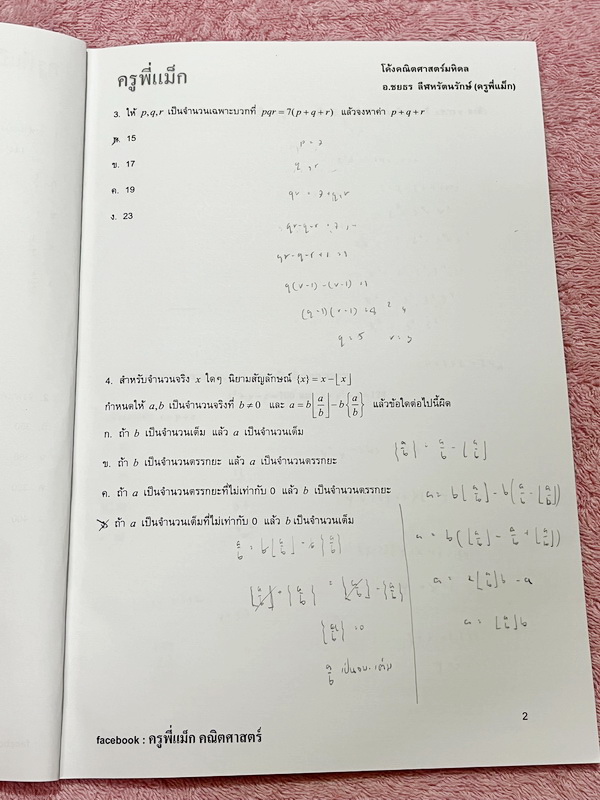 ครูพี่แม็ก
โค้งคณิตศาสตร์มหิดล
อ.ชยธร ลีฬหรัตนรักษ์ (ครูพี่แม็ก)
3. ให้ p,q,r เป็นจำนวนเฉพาะบวกที่ pqr = 7(p+q+r) แล้วจงหาค่า p+q+r
ก. 15
ข. 17
ค. 19
ง. 23
p = 7
(q-1)(r-1) = 8
q = 5 r = 3
4. สำหรับจำนวนจริง x ใดๆ นิยามสัญลักษณ์ {x} = x - ⌊x⌋
กำหนดให้ a,b เป็นจำนวนจริงที่ b ≠ 0 และ a = b⌊a/b⌋ - b{a/b} แล้วข้อใดต่อไปนี้ผิด
ก. ถ้า b เป็นจำนวนเต็ม แล้ว a เป็นจำนวนเต็ม
ข. ถ้า b เป็นจำนวนตรรกยะ แล้ว a เป็นจำนวนตรรกยะ
ค. ถ้า a เป็นจำนวนตรรกยะที่ไม่เท่ากับ 0 แล้ว b เป็นจำนวนตรรกยะ
ง. ถ้า a เป็นจำนวนเต็มที่ไม่เท่ากับ 0 แล้ว b เป็นจำนวนเต็ม
{a/b} = a/b - ⌊a/b⌋
a = b⌊a/b⌋ - b(a/b - ⌊a/b⌋)
a = b(⌊a/b⌋ - a/b + ⌊a/b⌋)
a = 2⌊a/b⌋b - a
a = ⌊a/b⌋b
{a/b} = 0
2
facebook : ครูพี่แม็ก คณิตศาสตร์